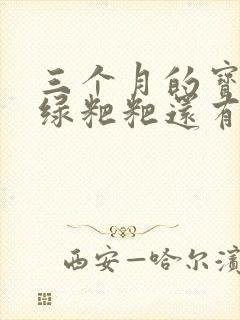 三个月的宝
绿粑粑还有
西安—哈尔滨